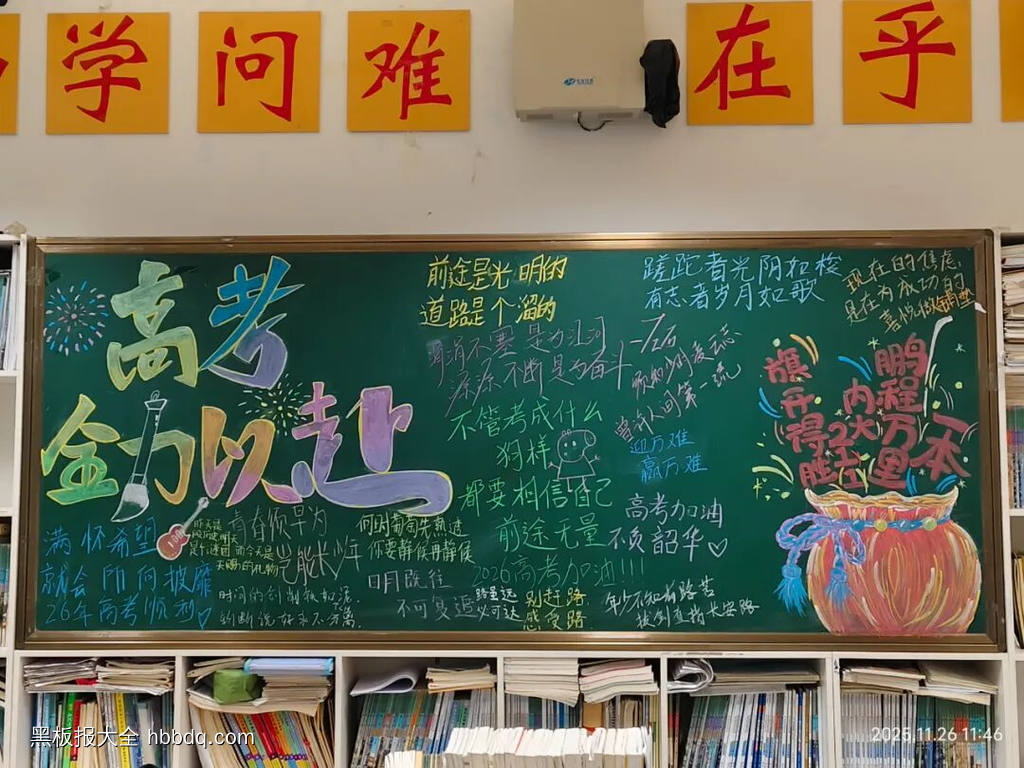 学问难
在乎
高考
全力以赴
前途是光明的
道路是个溜的
蹉跎者光阴如梭
有志者岁月如歌
现在的焦虑
是在为成功的
喜悦做铺垫
涓涓不塞是为江河
源源不断是为奋斗
须知少时凌云志
曾许人间第一流
不管考成什么
狗样
都要相信自己
前途无量
2026高考加油!!!
迎万难
赢万难
高考加油
不负韶华
年少不知前路苦
旗开得胜
鹏程万里
一本
满怀希望
就会所向披靡
26年高考顺利
青春须早为
岂能长少年
何向葡萄先熟透
你要静候再静候
日月既往
不可复追
路虽远
必可达
别赶路
感受路
黑板报大全 hbbdq.com
2025.11.26 11:46